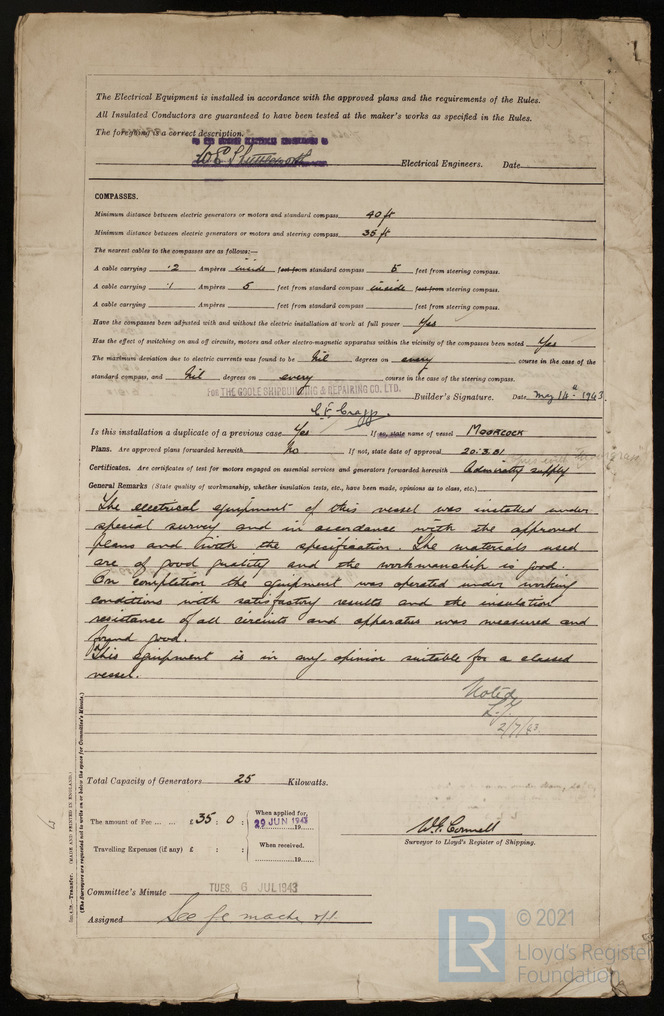 The Electrical Equipment is installed in accordance with the approved plans and the requirements of the Rules.
All Insulated Conductors are guaranteed to have been tested at the maker's works as specified in the Rules.
The foregoing is a correct description.
Electrical Engineers. Date
COMPASSES.
Minimum distance between electric generators or motors and standard compass 40 ft
Minimum distance between electric generators or motors and steering compass 35 ft
The nearest cables to the compasses are as follows:—
A cable carrying ·2 Ampères inside feet from standard compass 5 feet from steering compass.
A cable carrying ·1 Ampères 5 feet from standard compass inside feet from steering compass.
A cable carrying Ampères feet from standard compass feet from steering compass.
Have the compasses been adjusted with and without the electric installation at work at full power Yes
Has the effect of switching on and off circuits, motors and other electro-magnetic apparatus within the vicinity of the compasses been noted Yes
The maximum deviation due to electric currents was found to be Nil degrees on every course in the case of the
standard compass, and Nil degrees on every course in the case of the steering compass.
FOR THE GOOLE SHIPBUILDING & REPAIRING CO. LTD.
Builder's Signature. Date May 14th 1943
Is this installation a duplicate of a previous case Yes If so, state name of vessel MOORCOCK
Plans. Are approved plans forwarded herewith No If not, state date of approval 20.3.
Certificates. Are certificates of test for motors engaged on essential services and generators forwarded herewith Admiralty supply
General Remarks (State quality of workmanship, whether insulation tests, etc., have been made, opinions as to class, etc.)
The electrical equipment of this vessel was installed under
special survey and in accordance with the approved
plans and with the specification. The materials used
are of good quality and the workmanship is good.
On completion the equipment was operated under working
conditions with satisfactory results and the insulation
resistance of all circuits and apparatus was measured and
found good.
This equipment is in my opinion suitable for a classed
vessel.
Noted
2/7/43
Total Capacity of Generators 25 Kilowatts.
The amount of Fee £ 35 : 0 :
When applied for,
29 JUN 1943
Travelling Expenses (if any) £ : :
When received.
19
W.G. Connell
Surveyor to Lloyd's Register of Shipping.
Committee's Minute TUES. 6 JUL 1943
Assigned See
Transfer. (MADE AND PRINTED IN ENGLAND.)
(The Surveyors are requested not to write on or below the space for Committee's Minute.)
LR © 2021
Lloyd's Register
Foundation